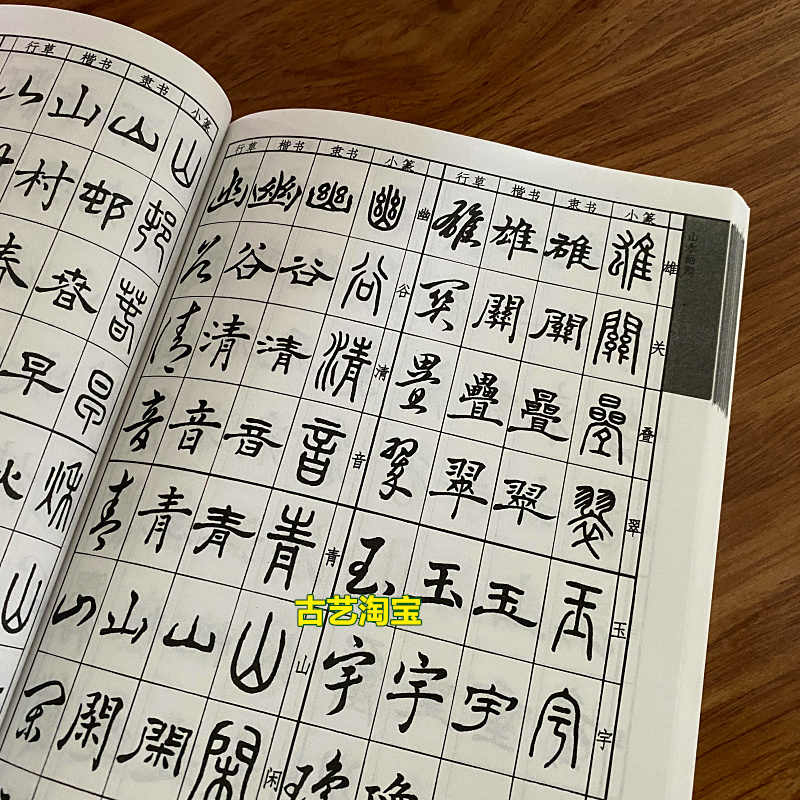 行草 楷书 隶书 小篆
山 山 山
村 邨 邨
春 春 春
早 早
山
行草 楷书 隶书 小篆
幽 幽 幽 幽 幽
谷 谷 谷 谷 谷
清 清 清 清 清
音 音 音 音 音
青 青 青 青 青
山 山 山 山 山
闲 閑 閑 閑 闲
行草 楷书 隶书 小篆
雄 雄 雄 雄 雄
関 關 關 關 关
疊 疊 疊 疊 叠
翠 翠 翠 翠 翠
玉 玉 玉 玉 玉
宇 宇 宇 宇 宇
古艺淘宝